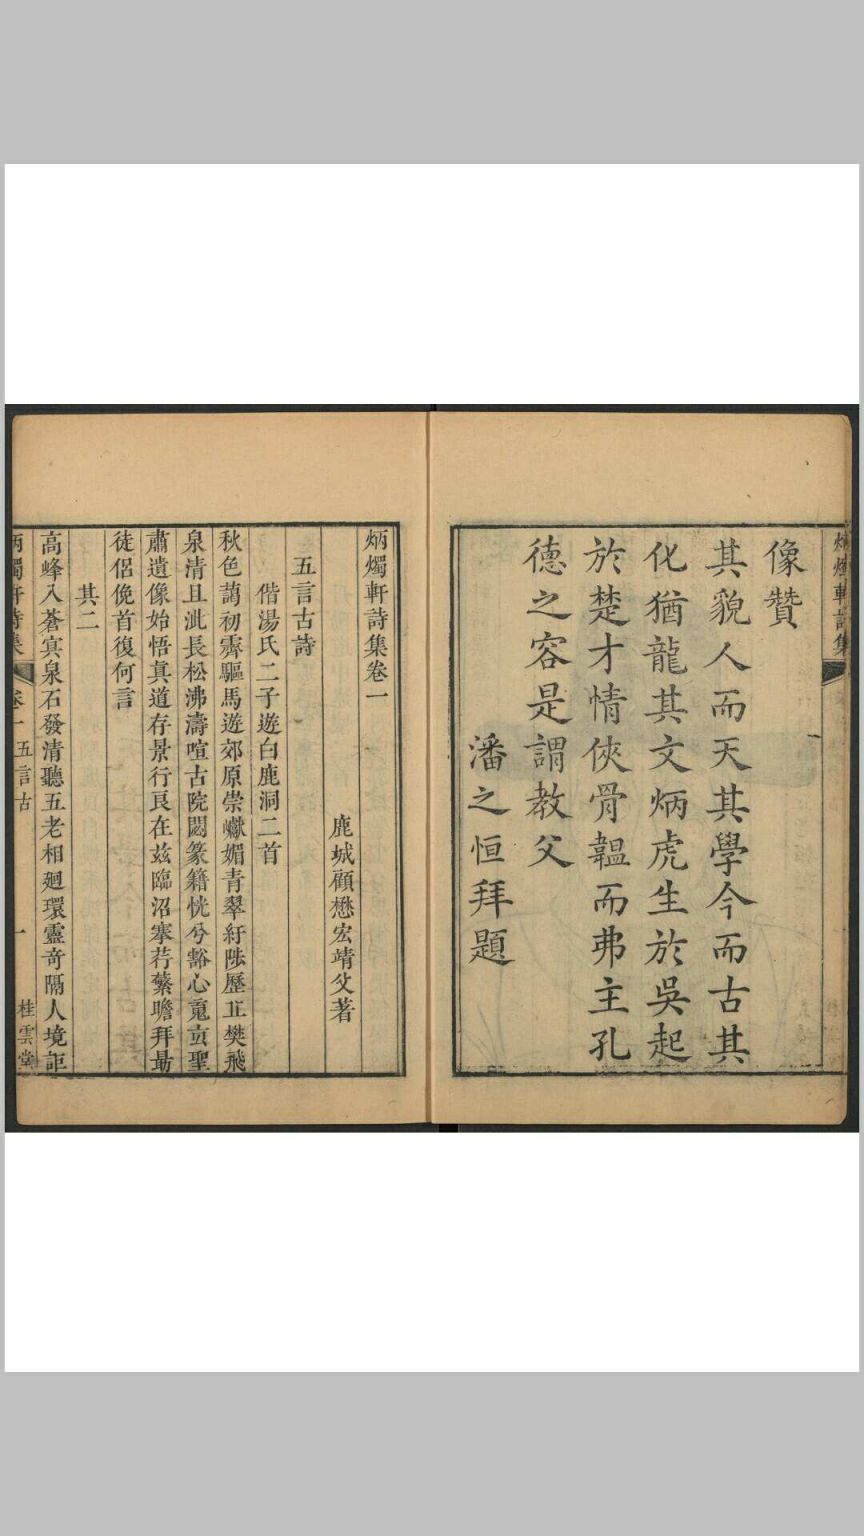 像贊
其貌人而天其學今而古其
化猶龍其文炳虎生於吳起
於楚才情俠骨韞而弗主孔
德之容是謂教父
潘之恒拜題
炳燭軒詩集卷一
鹿城顧懋宏靖父著
五言古詩
偕湯氏二子遊白鹿洞二首
秋色藹初霽驅馬遊郊原崇巘媚青翠紆陟歷丘樊飛
泉清且泚長松沸濤喧古院閟篆籍恍兮豁心䰟玄聖
肅遺像始悟真道存景行良在玆臨沼搴荇蘩瞻拜勗
徒侶俛首復何言
其二
高峰入蒼冥泉石發清聽五老相廻環靈奇隔人境詎
炳燭軒詩集
卷一
五言古
一
桂雲堂